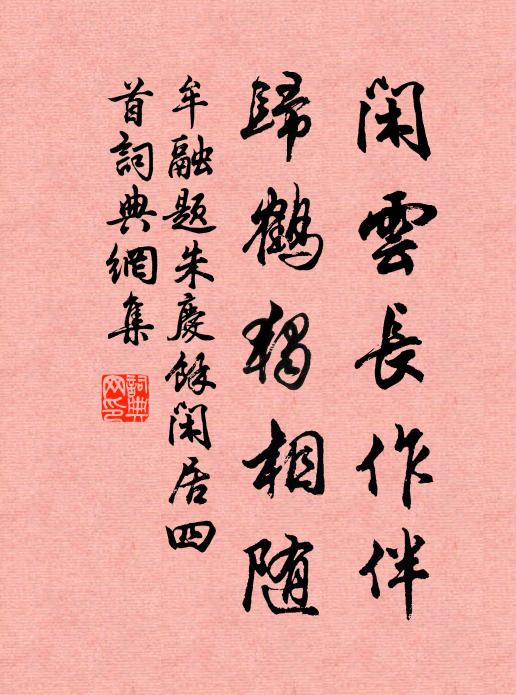 閑雲長作伴
歸鶴獨相随
牟融題朱慶餘閑居四
首詞典網集
詞典
网印